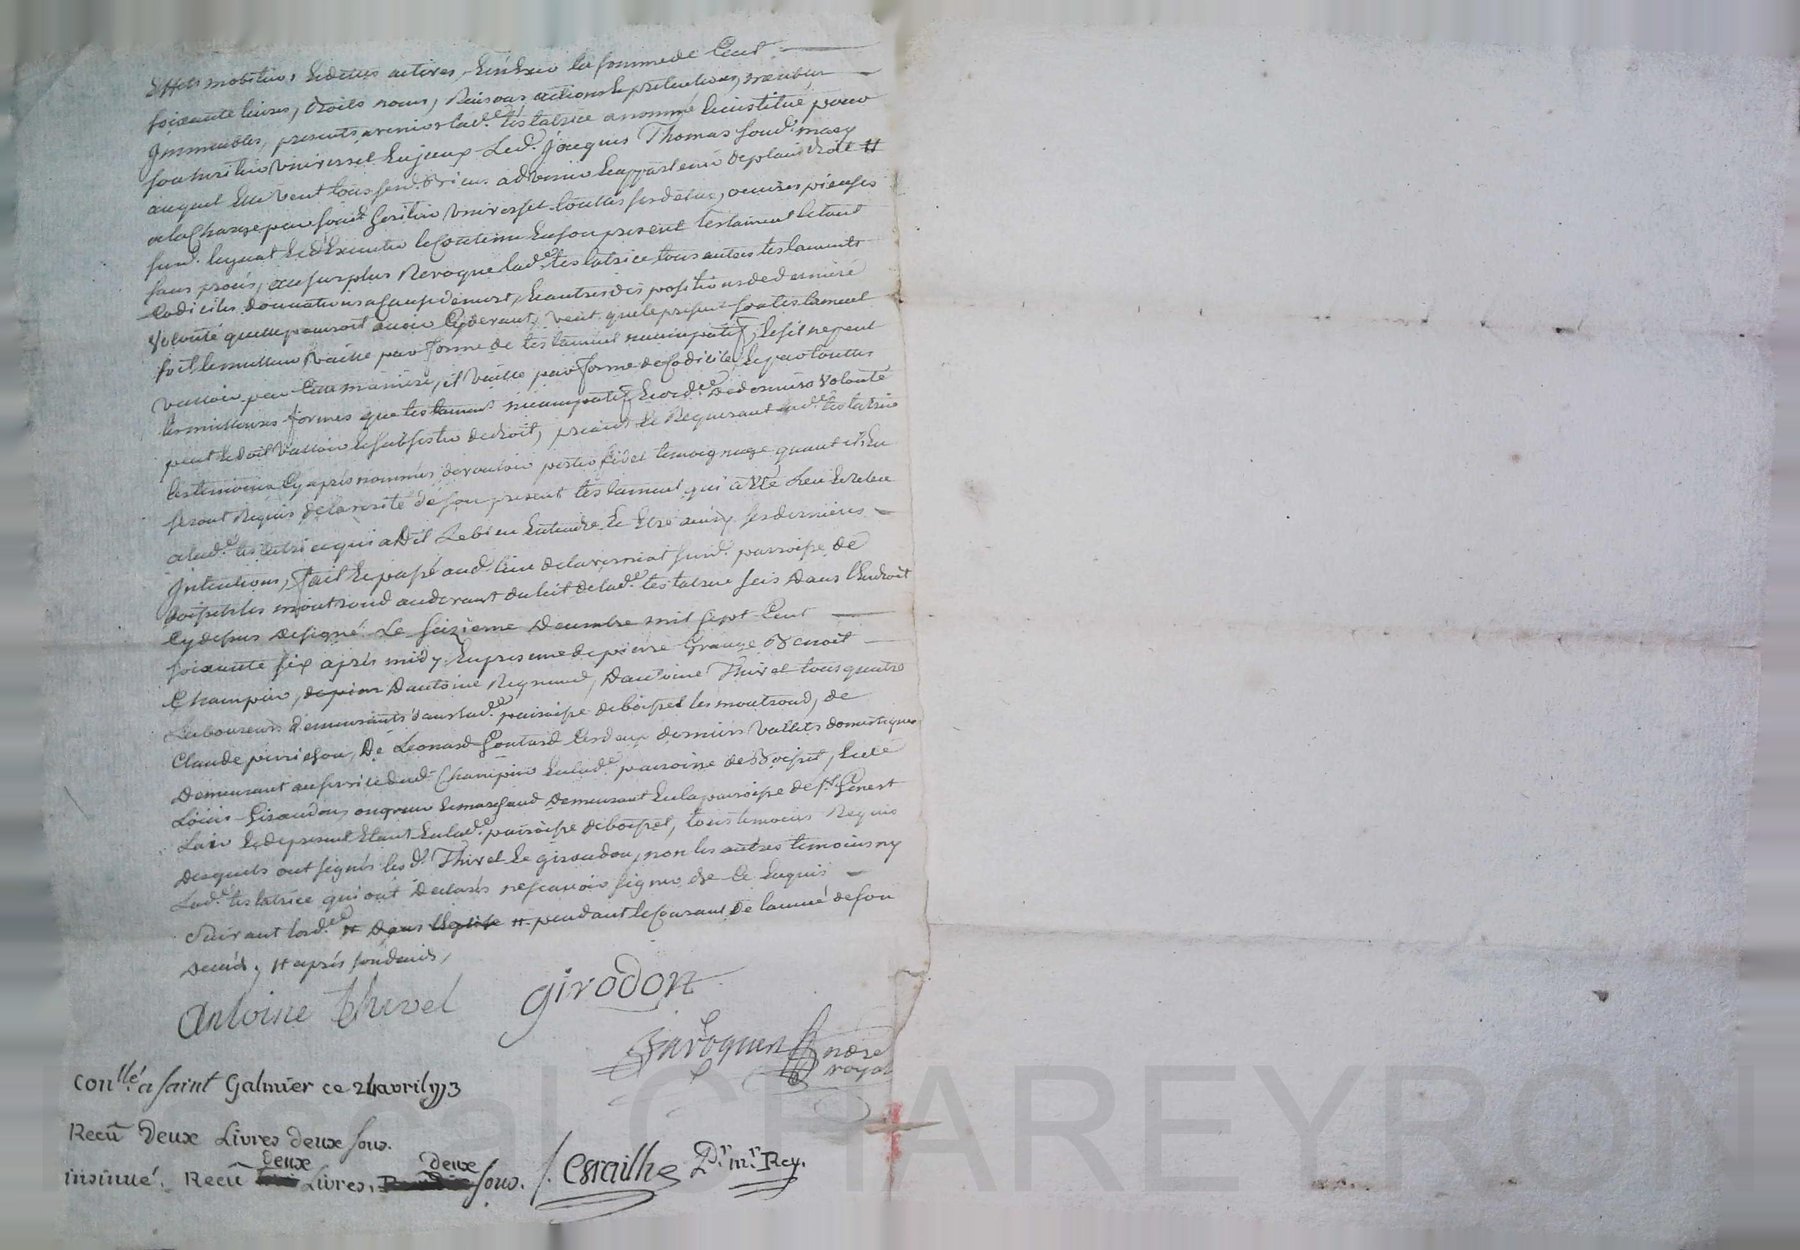 Effets mobiliers, et dettes actives, en la somme de Cent
soixante livres, droits noms, raisons actions et pretentions, meubles
jmmeubles, presents avenirs lad.e testatrice a nommé et institué, pour
son heritier universel Led. jacques Thomas soud. mary
auquel elle veut tous sesd. biens advenir et appartenir de plain droit #
a la Charge par sond. heritier universel touttes ses dettes, oeuvres pieuses
susd. leguat et d'Executer le Contenu en son present testament le tout
sans procés, au surplus Revoque lad.e testatrice tous autres testaments
Codiciles donnations a cause de mort, et autres dispositions de derniere
volonté quelle pourroit avoir Cy devant, veut que le present son testament
soit le meilleur vaille par forme de testament nuncupatif, et s'il ne peut
valloir par cette maniere, il vaille par forme de Codicile, et par touttes
les meilleures formes que testament nuncupatif et ord.ce de derniere volonté
peut et doit valloir et subsister de droit, priant et Requerant lad.e testatrice
les temoins Cy aprés nommés de vouloir porter fidel temoignage quant ils en
seront Requis de la verité de son present testament qui a été Leu et releu
a lad.e testatrice qui a dit Le bien entendre et Etre ainsy ses dernieres
jntentions, fait et passé aud. lieu susd. parroisse de
boisset les montrond au devant du lit de lad.e testatrice sis dans l'Endroit
Cy dessus designé. Le seizieme Decembre mil sept Cent
soixante six aprés midy, En presence de pierre Grange, Benoit
Champier, Dantoine Reynaud, Dantoine Thivel tous quatre
Laboureurs demeurants dans lad.e parroisse de boisset les montrond, de
Claude De Léonard Goutard les deux derniers vallets domestiques
Demeurant au service dud. Champier en lad.e parroisse de Boisset, et de
Louis Giraudon et marchand demeurant en la parroisse de St. Genest
Lair et de present Etant en lad.e parroisse de boisset, tous temoins Requis
desquels ont signés lesd. Thivel et giraudon, non les autres temoins ny
Lad.e testatrice qui ont declarés ne sçavoir signer de ce Enquis
Suivant lord.ce # Dans l'Eglise # pendant le Courant de lannée de son
decés, # aprés son decés,
Antoine thivel girodon
nore
royal
Con.llé a saint Galmier ce 24 avril 1773
Recû Deux Livres deux sous.
deux deux
insinué. Recû Livres, sous. D.r m.r Rey.
Pascal CHAREYRON